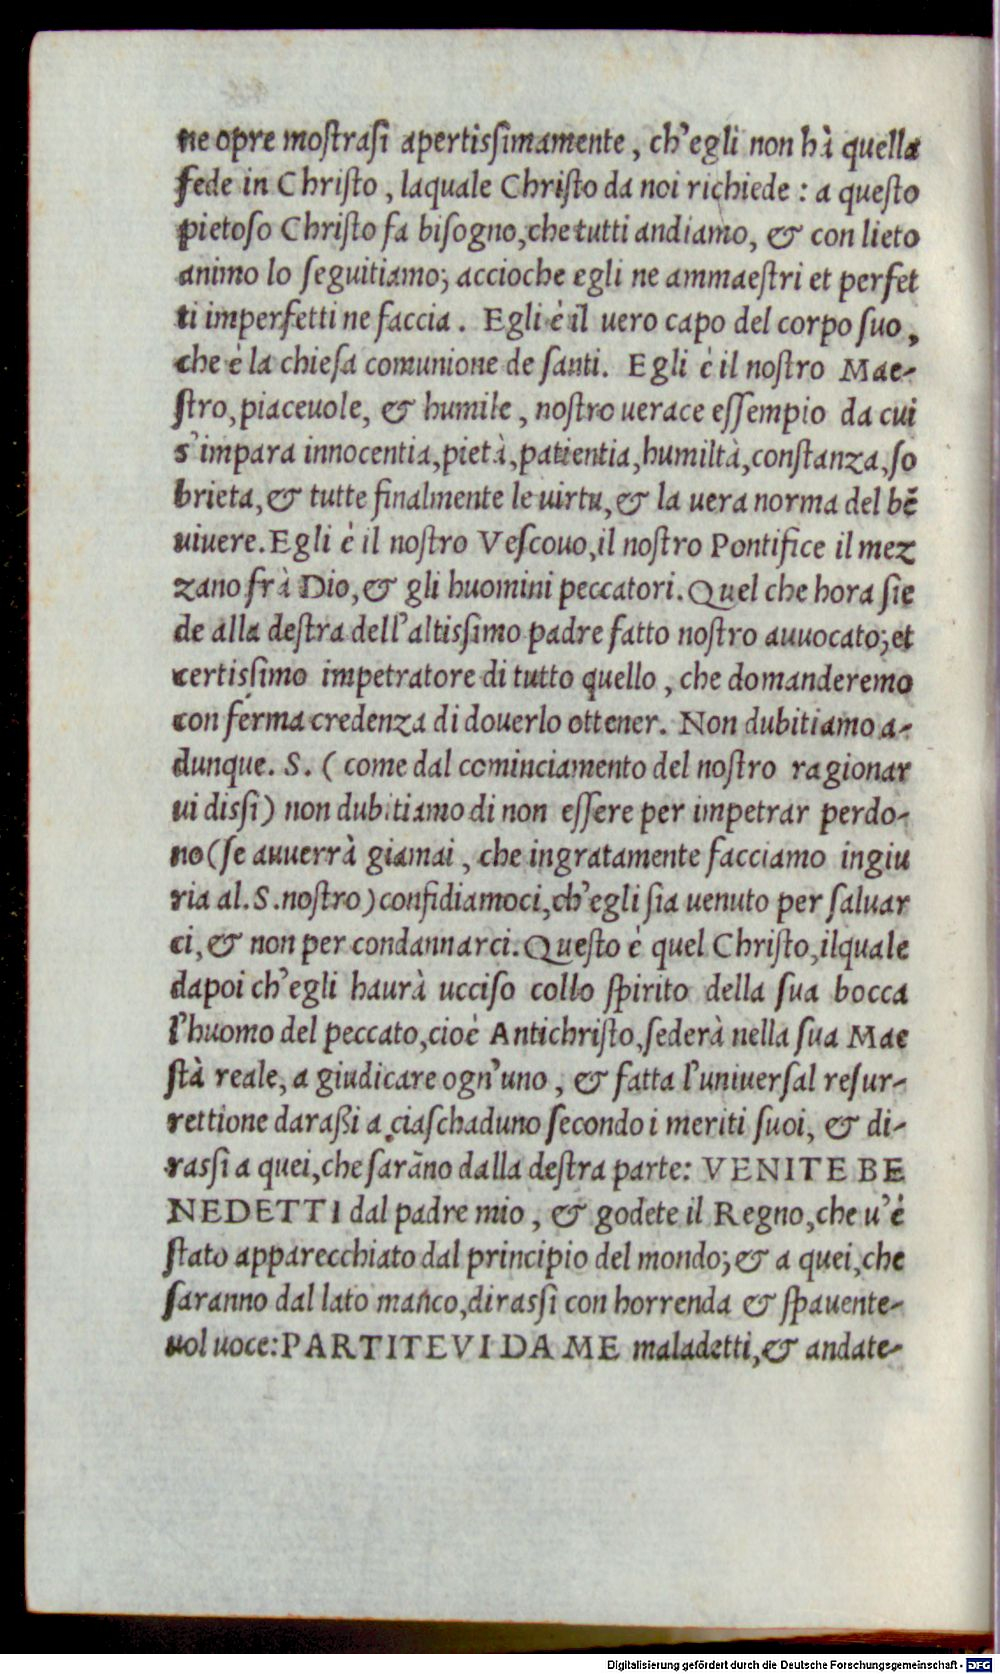 ne opre mostrasi apertissimamente, ch'egli non hà quella
fede in Christo, laquale Christo da noi richiede: a questo
pietoso Christo fa bisogno, che tutti andiamo, & con lieto
animo lo seguitiamo; accioche egli ne ammaestri et perfet
ti imperfetti ne faccia. Egli è il uero capo del corpo suo,
che è la chiesa comunione de santi. Egli è il nostro Mae-
stro, piaceuole, & humile, nostro uerace essempio da cui
s'impara innocentia, pietà, patientia, humiltà, constanza, so
brieta, & tutte finalmente le uirtu, & la uera norma del bẽ
uiuere. Egli è il nostro Vescouo, il nostro Pontifice il mez
zano frà Dio, & gli huomini peccatori. Quel che hora sie
de alla destra dell'altissimo padre fatto nostro auuocato; et
certissimo impetratore di tutto quello, che domanderemo
con ferma credenza di douerlo ottener. Non dubitiamo a-
dunque. S. ( come dal cominciamento del nostro ragionar
ui dissi) non dubitiamo di non essere per impetrar perdo-
no (se auuerrà giamai, che ingratamente facciamo ingiu
ria al. S. nostro) confidiamoci, ch'egli sia uenuto per saluar
ci, & non per condannarci. Questo è quel Christo, ilquale
dapoi ch'egli haurà ucciso collo spirito della sua bocca
l'huomo del peccato, cioè Antichristo, sederà nella sua Mae
stà reale, a giudicare ogn'uno, & fatta l'uniuersal resur-
rettione daraßi a ciaschaduno secondo i meriti suoi, & di-
rassi a quei, che sarãno dalla destra parte: VENITE BE
NEDETTI dal padre mio, & godete il Regno, che u'è
stato apparecchiato dal principio del mondo; & a quei, che
saranno dal lato manco, dirassi con horrenda & spauente-
uol uoce: PARTITEVI DA ME maladetti, & andate-
Digitalisierung gefördert durch die Deutsche Forschungsgemeinschaft - DFG